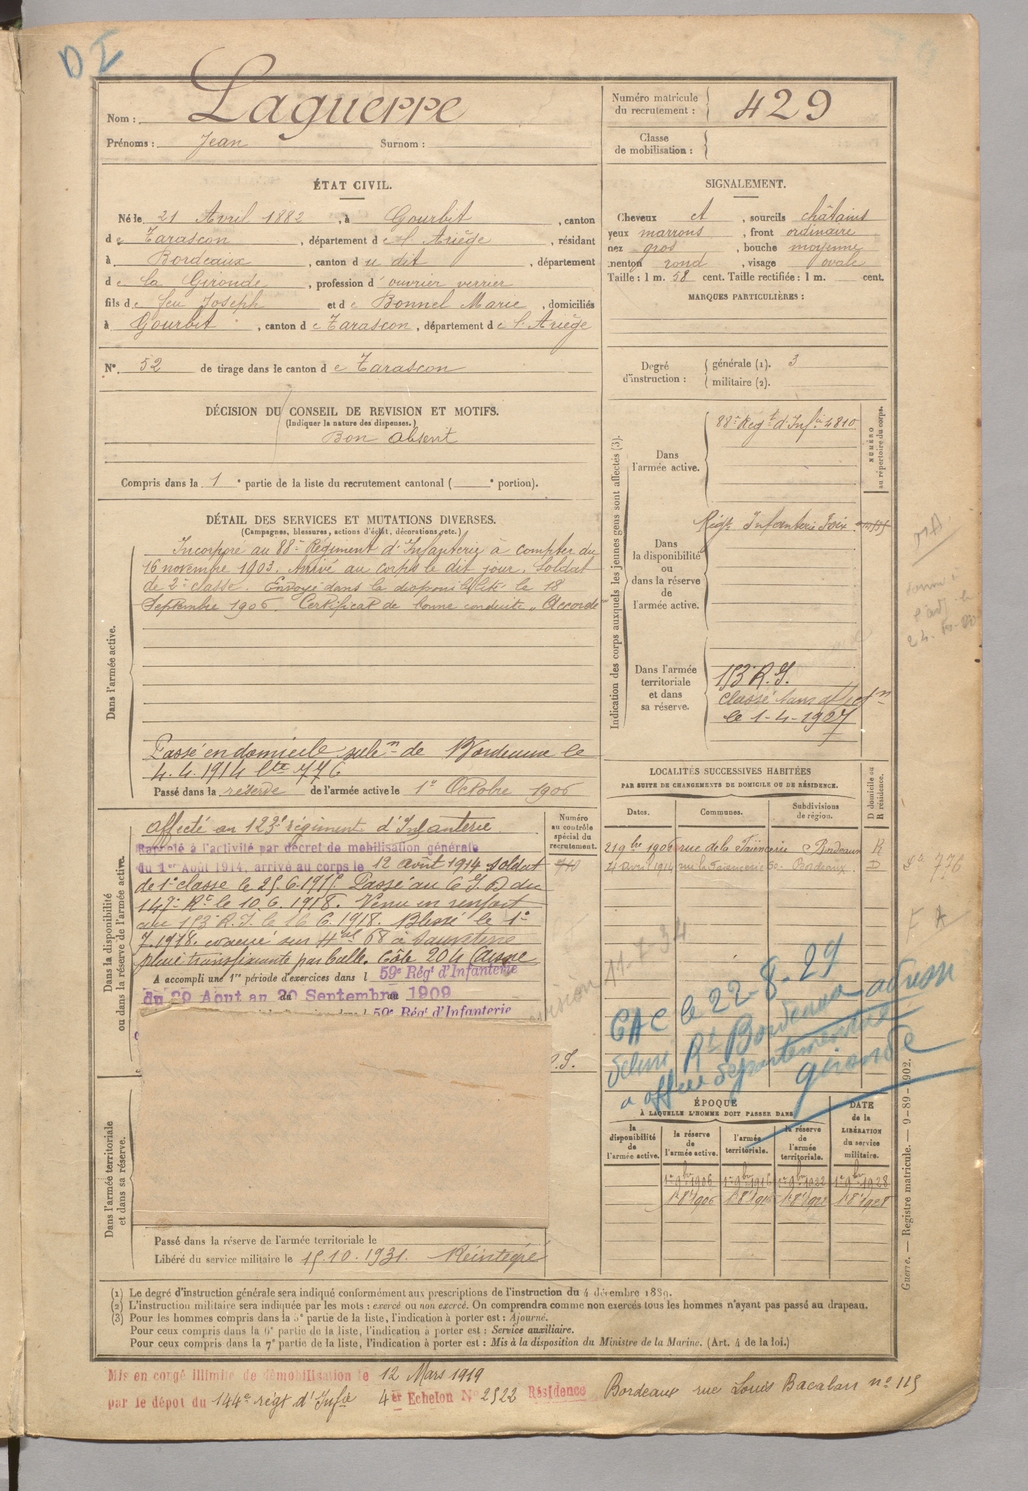 D I
Nom : Laguerre
Prénoms : Jean Surnom :
Numéro matricule du recrutement : 429
Classe de mobilisation :
ÉTAT CIVIL.
Né le 21 Avril 1882, à Gourbit, canton
de Tarascon, département de l'Ariège, résidant
à Bordeaux, canton du dit, département
de la Gironde, profession d'ouvrier verrier
fils de feu Joseph et de Bonnel Marie, domiciliés
à Gourbit, canton de Tarascon, département de l'Ariège
N° 52 de tirage dans le canton de Tarascon
SIGNALEMENT.
Cheveux ct, sourcils châtains
yeux marrons, front ordinaire
nez gros, bouche moyenne
menton rond, visage ovale
Taille : 1 m. 58 cent. Taille rectifiée : 1 m. cent.
MARQUES PARTICULIÈRES :
Degré d'instruction : générale (1). 3
militaire (2).
DÉCISION DU CONSEIL DE REVISION ET MOTIFS.
(Indiquer la nature des dispenses.)
Bon absent
Compris dans la 1e partie de la liste du recrutement cantonal ( e portion).
DÉTAIL DES SERVICES ET MUTATIONS DIVERSES.
(Campagnes, blessures, actions d'éclat, décorations, etc.)
Dans l'armée active.
Incorporé au 88e Régiment d'Infanterie à compter du
16 novembre 1903. Arrivé au corps le dit jour. Soldat
de 2e classe. Envoyé dans la disponibilité le 18
Septembre 1906. Certificat de bonne conduite "Accordé"
Passé en domicile de Bordeaux le
4.4.1914 776
Passé dans la réserve de l'armée active le 1er Octobre 1906
Dans la disponibilité ou dans la réserve de l'armée active.
Affecté au 123e régiment d'Infanterie
Rappelé à l'activité par décret de mobilisation générale
du 1er Août 1914, arrivé au corps le 12 août 1914 soldat
de 1e classe le 25.6.1915 Passé au C.I.D du
147e Ri le 10.6.1918. Venu en renfort
au 153e R.I. le 16.6.1918. Blessé le 1er
7.1918. sur 68 à
plaie transfixiante par balle. Côte 204 (Aisne
A accompli une 1re période d'exercices dans l 59e Régt d'Infanterie
du 29 Aout au 20 Septembre 1909
59e Régt d'Infanterie
Numéro au contrôle spécial du recrutement.
Dans l'armée territoriale et dans sa réserve.
Passé dans la réserve de l'armée territoriale le
Libéré du service militaire le 15.10.1931. Réintégré
Indication des corps auxquels les jeunes gens sont affectés (3).
NUMÉRO au répertoire du corps.
Dans l'armée active.
88e Régt d'Infie 4810
Dans la disponibilité ou dans la réserve de l'armée active.
Régt Infanterie Foix
Dans l'armée territoriale et dans sa réserve.
153 R.I.
Classé sans affon
le 1-4-1927
LOCALITÉS SUCCESSIVES HABITÉES
PAR SUITE DE CHANGEMENTS DE DOMICILE OU DE RÉSIDENCE.
Dates. Communes. Subdivisions de région. D domicile ou R résidence.
21 9bre 1906 rue de la Faïencerie Bordeaux R
4 avril 1914 rue la Faïencerie 30 Bordeaux D
776
11-7-34
CAC le 22-8-29
Rt Bordeaux
départementale
gironde
ÉPOQUE
À LAQUELLE L'HOMME DOIT PASSER DANS
la disponibilité de l'armée active.
la réserve de l'armée active.
l'armée territoriale.
la réserve de l'armée territoriale.
DATE de la LIBÉRATION du service militaire.
Guerre. — Registre matricule. — 9-89-1902.
(1) Le degré d'instruction générale sera indiqué conformément aux prescriptions de l'instruction du 4 décembre 1889.
(2) L'instruction militaire sera indiquée par les mots : exercé ou non exercé. On comprendra comme non exercés tous les hommes n'ayant pas passé au drapeau.
(3) Pour les hommes compris dans la 5e partie de la liste, l'indication à porter est : Ajourné.
Pour ceux compris dans la 6e partie de la liste, l'indication à porter est : Service auxiliaire.
Pour ceux compris dans la 7e partie de la liste, l'indication à porter est : Mis à la disposition du Ministre de la Marine. (Art. 4 de la loi.)
Mis en congé illimité de démobilisation le 12 Mars 1919
par le dépot du 144e régt d'Infie 4er Echelon N° 2522 Résidence Bordeaux rue Louis Bacalan n° 115